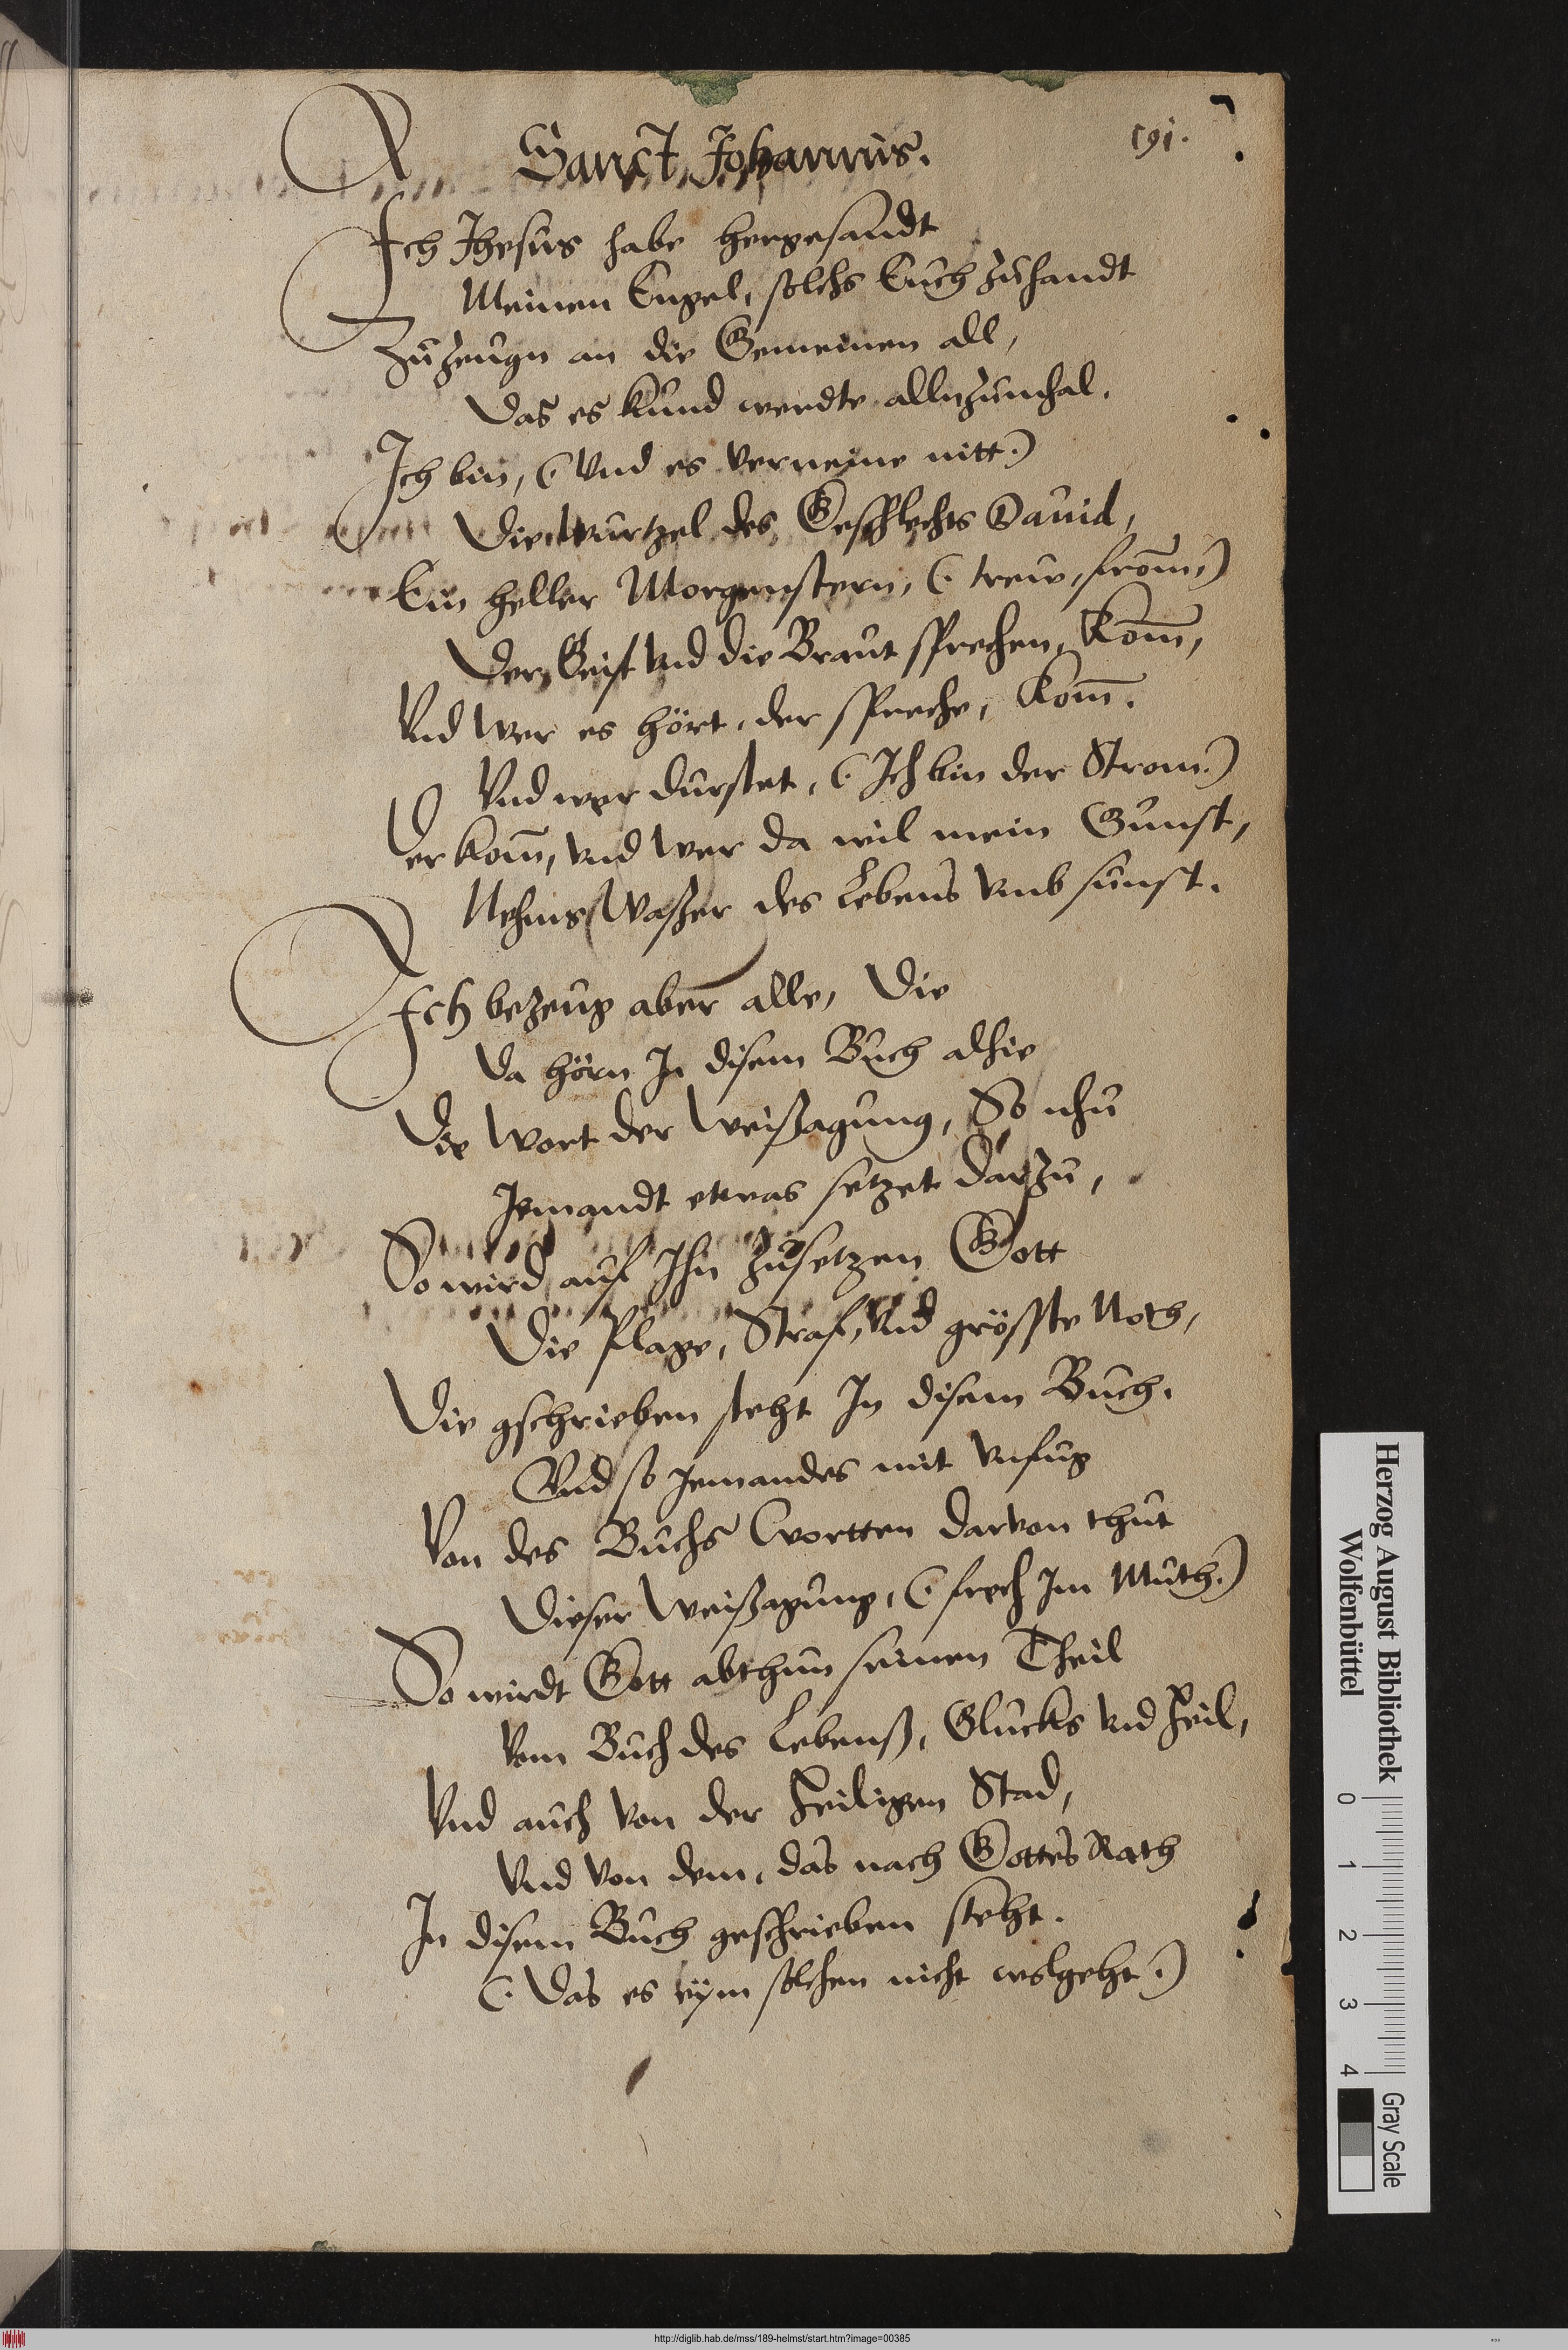 Sanct Johannis.
191.
Ich Jhesus habe hergesandt
Meinen Engel, solchs Euch zuhandt
Zuzeugn an die Gemeinen all,
Das es kund werdte allnzumhal.
Ich bin, (Vnd es verneine nitt.)
Die wurtzel des Geschlechts Dauid,
Ein heller Morgenstern, (treu, from̄,)
Der Geist vnd die Braut sprechen, Kom̄,
Vnd wer es hört, der spreche, Kom̄.
Vnd wer durstet, (Ich bin der Strom.)
Der kom̄, vnd wer da wil mein Gunst,
Nehms Waßer des Lebens vmb sunst.
Ich bezeug aber alle, Die
Da hörn In disem Buch alhie
Die Wort der Weißagung, So nhu
Jemandt etwas setzet darzu,
So wird auf Ihn zusetzen Gott
Die Plage, Straf, Vnd grösste Noth,
Die gschrieben steht In disem Buch.
Vnd so Jemandes mit vnfug
Von des Buchs Wortten darvon thut
Dieser Weißagung, (frech Im Muth.)
So wirdt Gott abthun seinen Theil
Vom Buch des Lebenß, Glucks vnd Heil,
Vnd auch von der Heiligen Stad,
Vnd von dem, das nach Gottes Rath
In disem Buch geschrieben steht.
(Das es eym solchen nicht wolgeht.)
Herzog August Bibliothek
Wolfenbüttel
0 1 2 3 4
Gray Scale
http://diglib.hab.de/mss/189-helmst/start.htm?image=00385